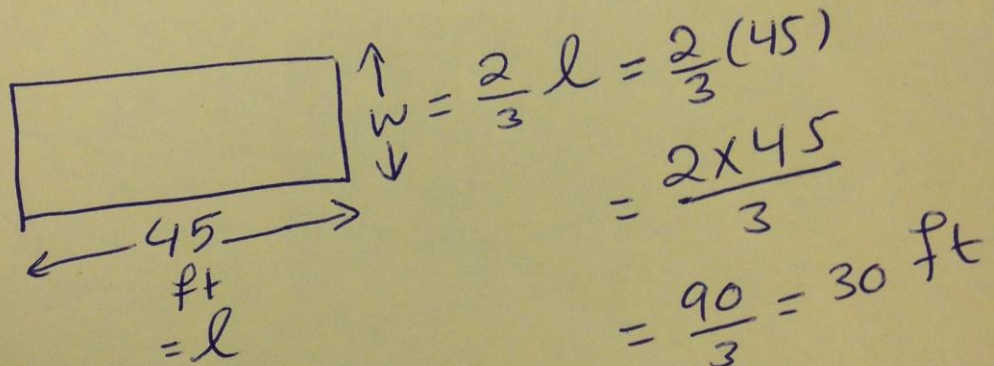 w = 2/3 l = 2/3 (45)
= 2 x 45 / 3
= 90/3 = 30 ft
45
ft
= l